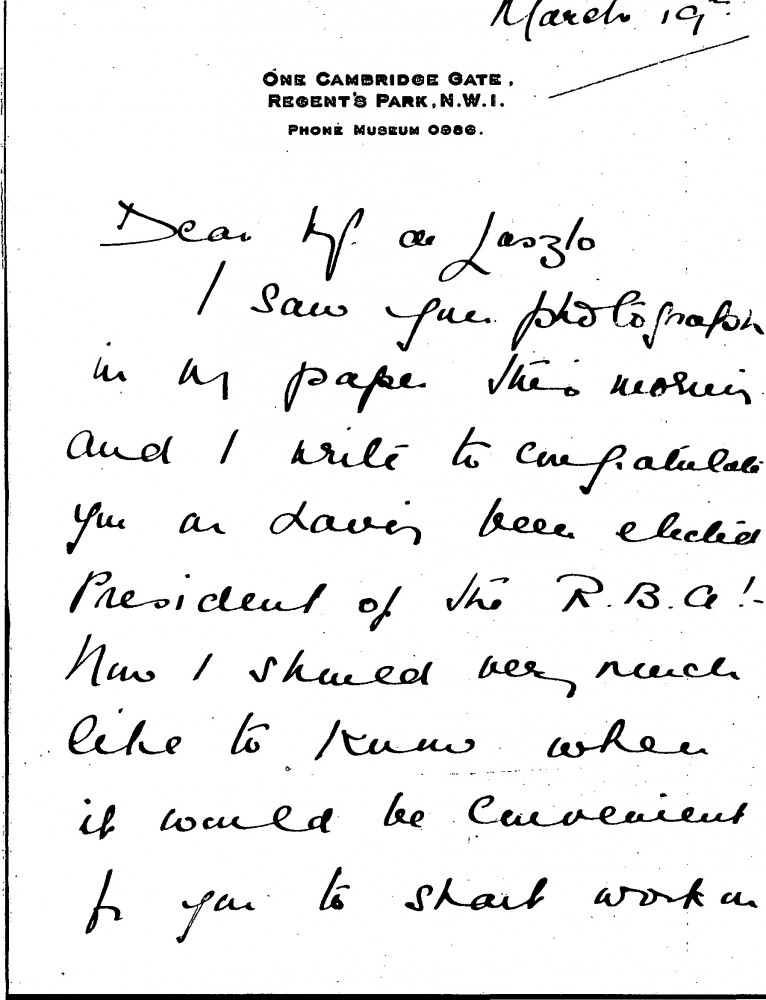 March 19th
ONE CAMBRIDGE GATE,
REGENT'S PARK, N.W.1.
PHONE MUSEUM 0986.
Dear Mr. de Laszlo
I saw your photograph
in my paper this morning
and I write to congratulate
you on having been elected
President of the R.B.A!-
Now I should very much
like to know when
it would be convenient
for you to start work on